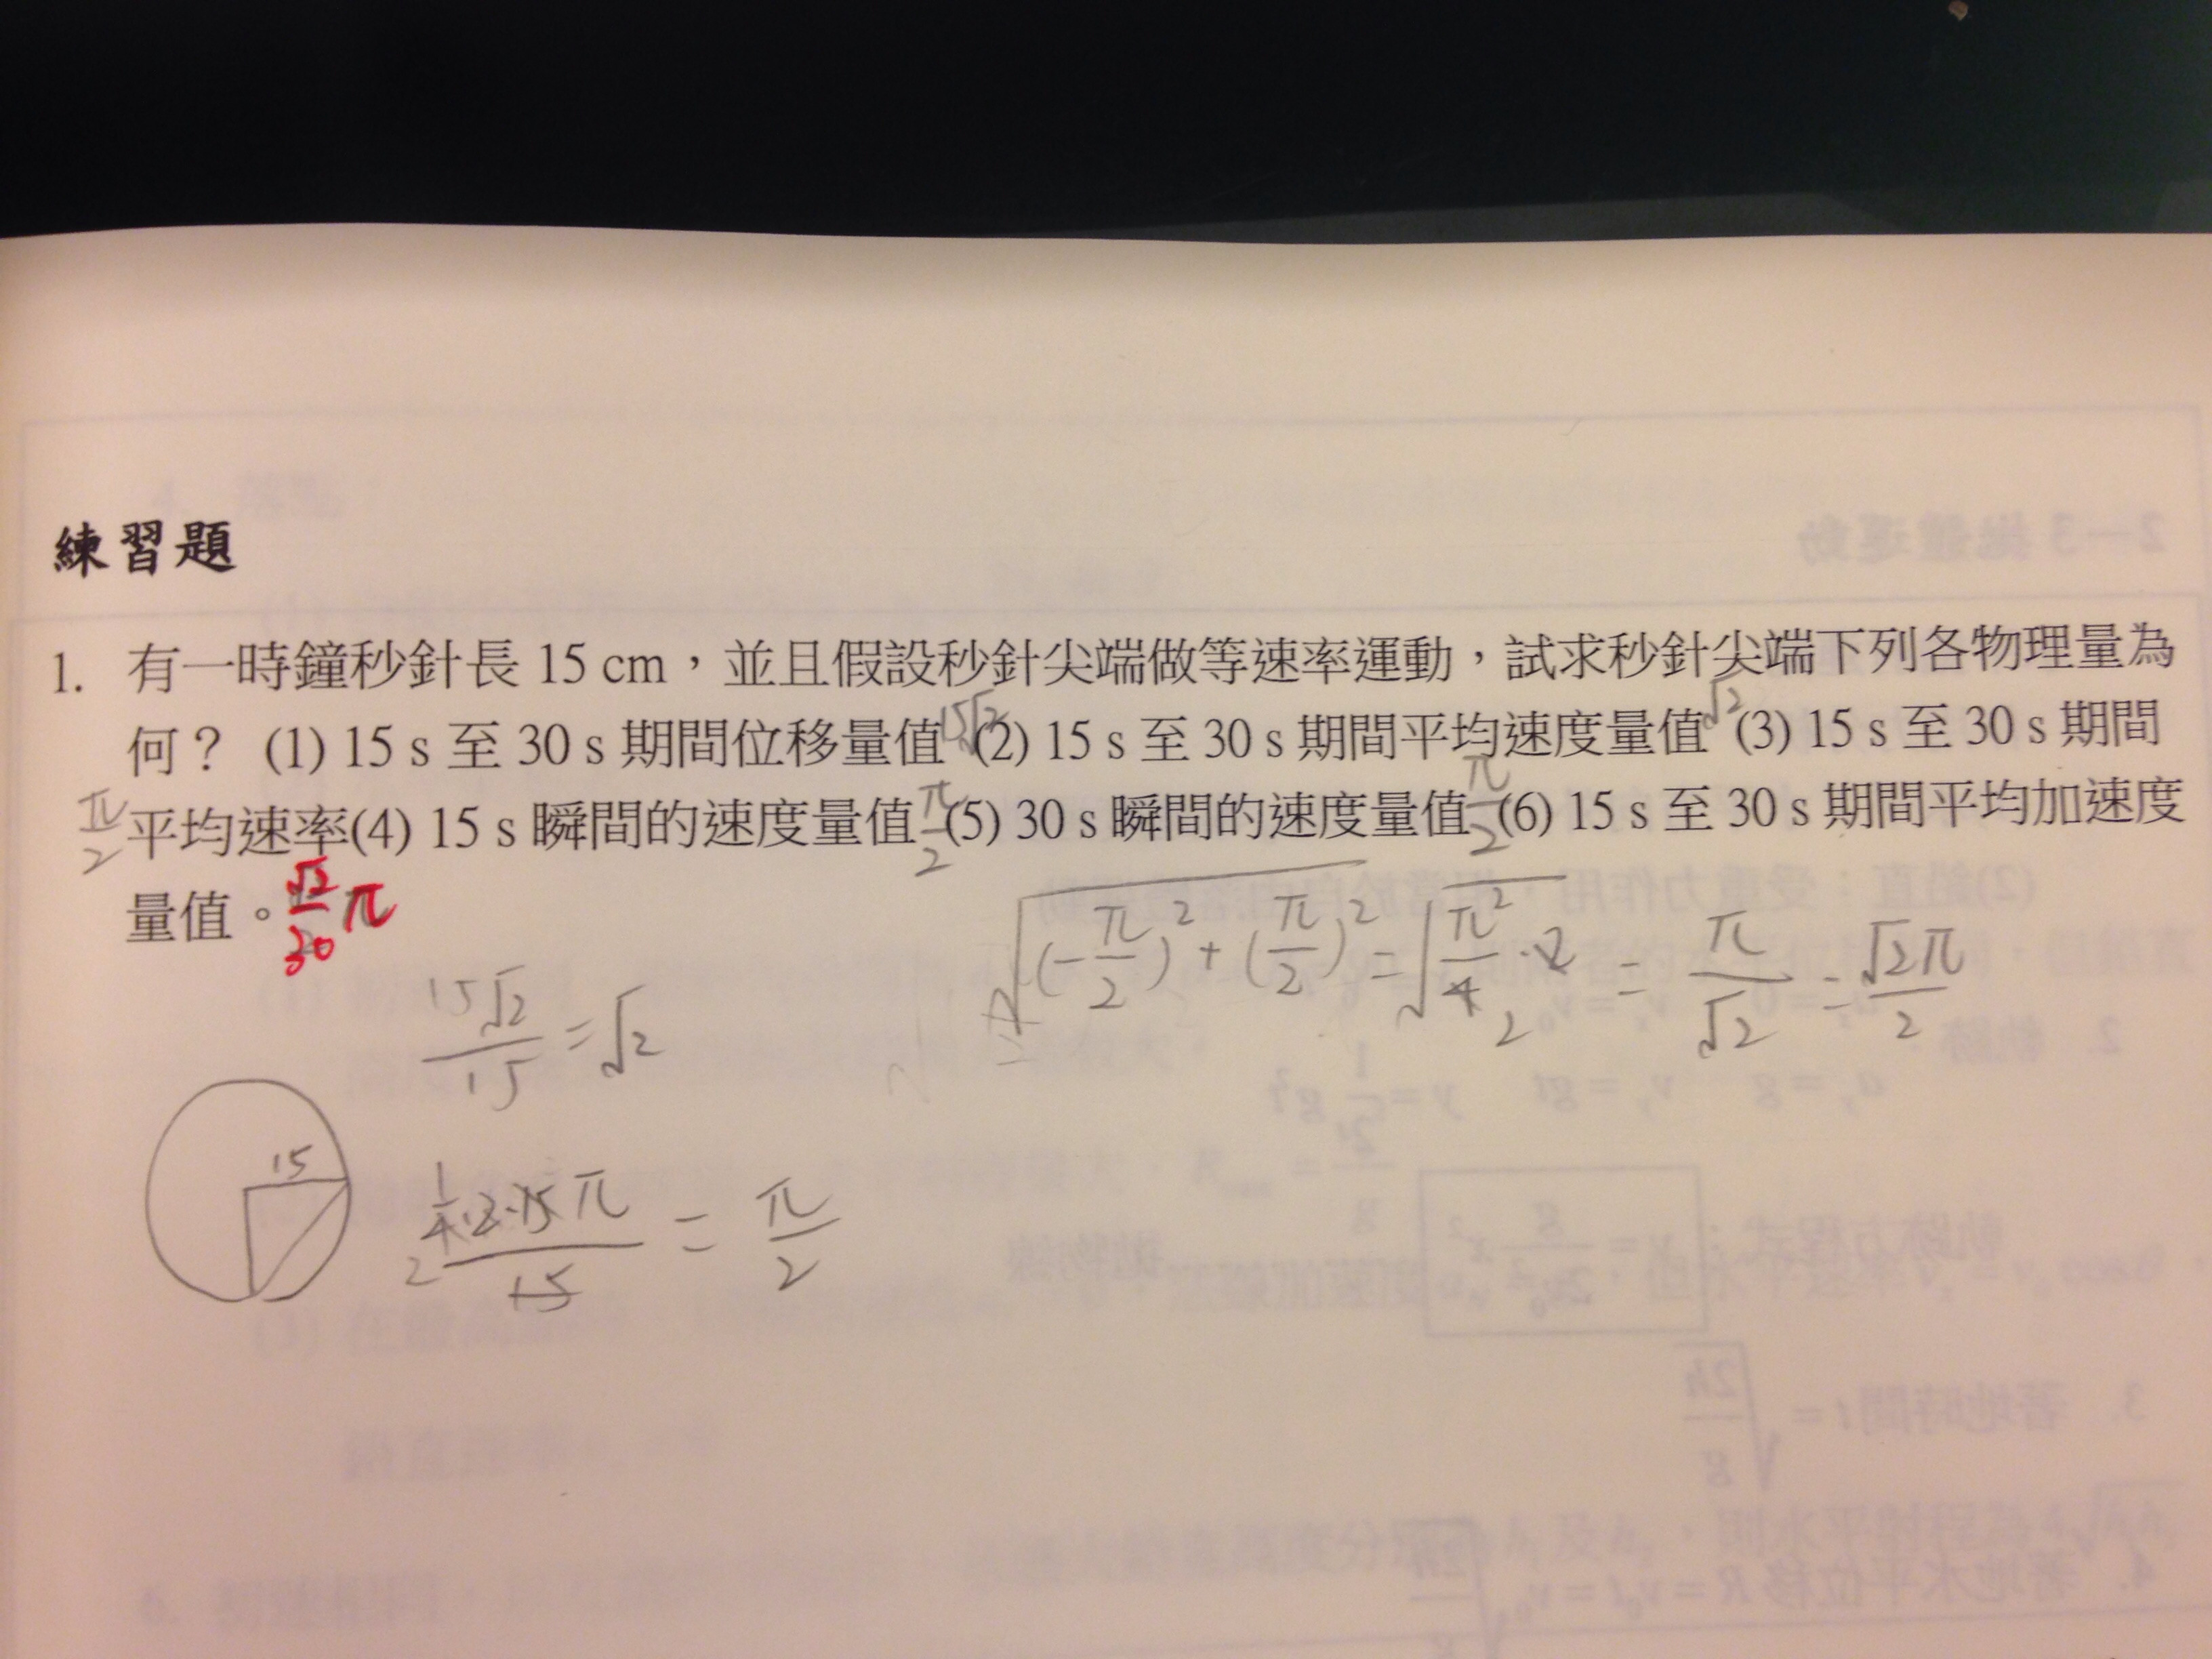 練習題
1. 有一時鐘秒針長 15 cm，並且假設秒針尖端做等速率運動，試求秒針尖端下列各物理量為
何？ (1) 15 s 至 30 s 期間位移量值 15√2 (2) 15 s 至 30 s 期間平均速度量值 √2 (3) 15 s 至 30 s 期間
π/2 平均速率(4) 15 s 瞬間的速度量值 π/2 (5) 30 s 瞬間的速度量值 π/2 (6) 15 s 至 30 s 期間平均加速度
量值。 √2/30 π
√((-π/2)² + (π/2)²) = √(π²/4 · 2) = π/√2 = √2π/2
15√2/15 = √2
15
1/4·2·15π/15 = π/2